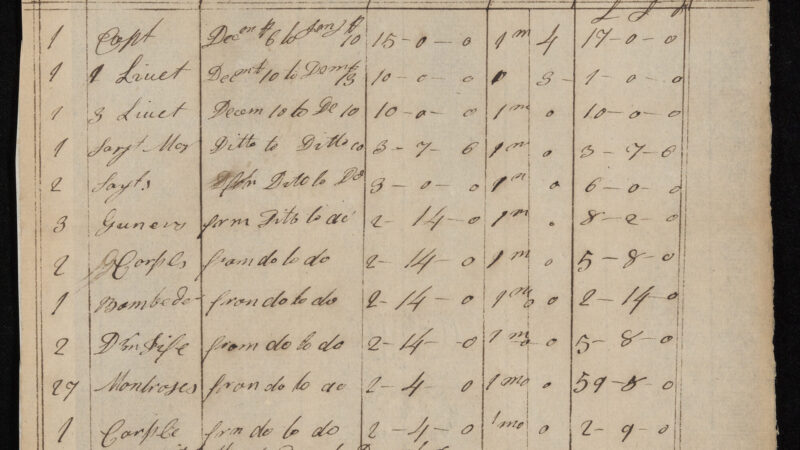 £ s d
1 Capt Decem 6 to Jany 10 15-0-0 1m 4 17-0-0
1 1 Liuet Decemt 10 to Decmr 13 10-0-0 0 3- 1-0-0
1 3 Liuet Decem 10 to De 10 10-0-0 1mo 0 10-0-0
1 Sarjt Mor Ditto to Ditto 3-7-6 1m 0 3-7-6
2 Sarjts Ditto to Do 3-0-0 1m 0 6-0-0
3 Guners frm Ditto to do 2-14-0 1m 0 8-2-0
2 Corples from do to do 2-14-0 1m 0 5-8-0
1 Bombede from do to do 2-14-0 1mo 0 2-14-0
2 Drm Fife from do to do 2-14-0 1mo 0 5-8-0
27 Montroses from do to do 2-4-0 1mo 0 59-8-0
1 Corple frm do to do 2-4-0 1mo 0 2-9-0